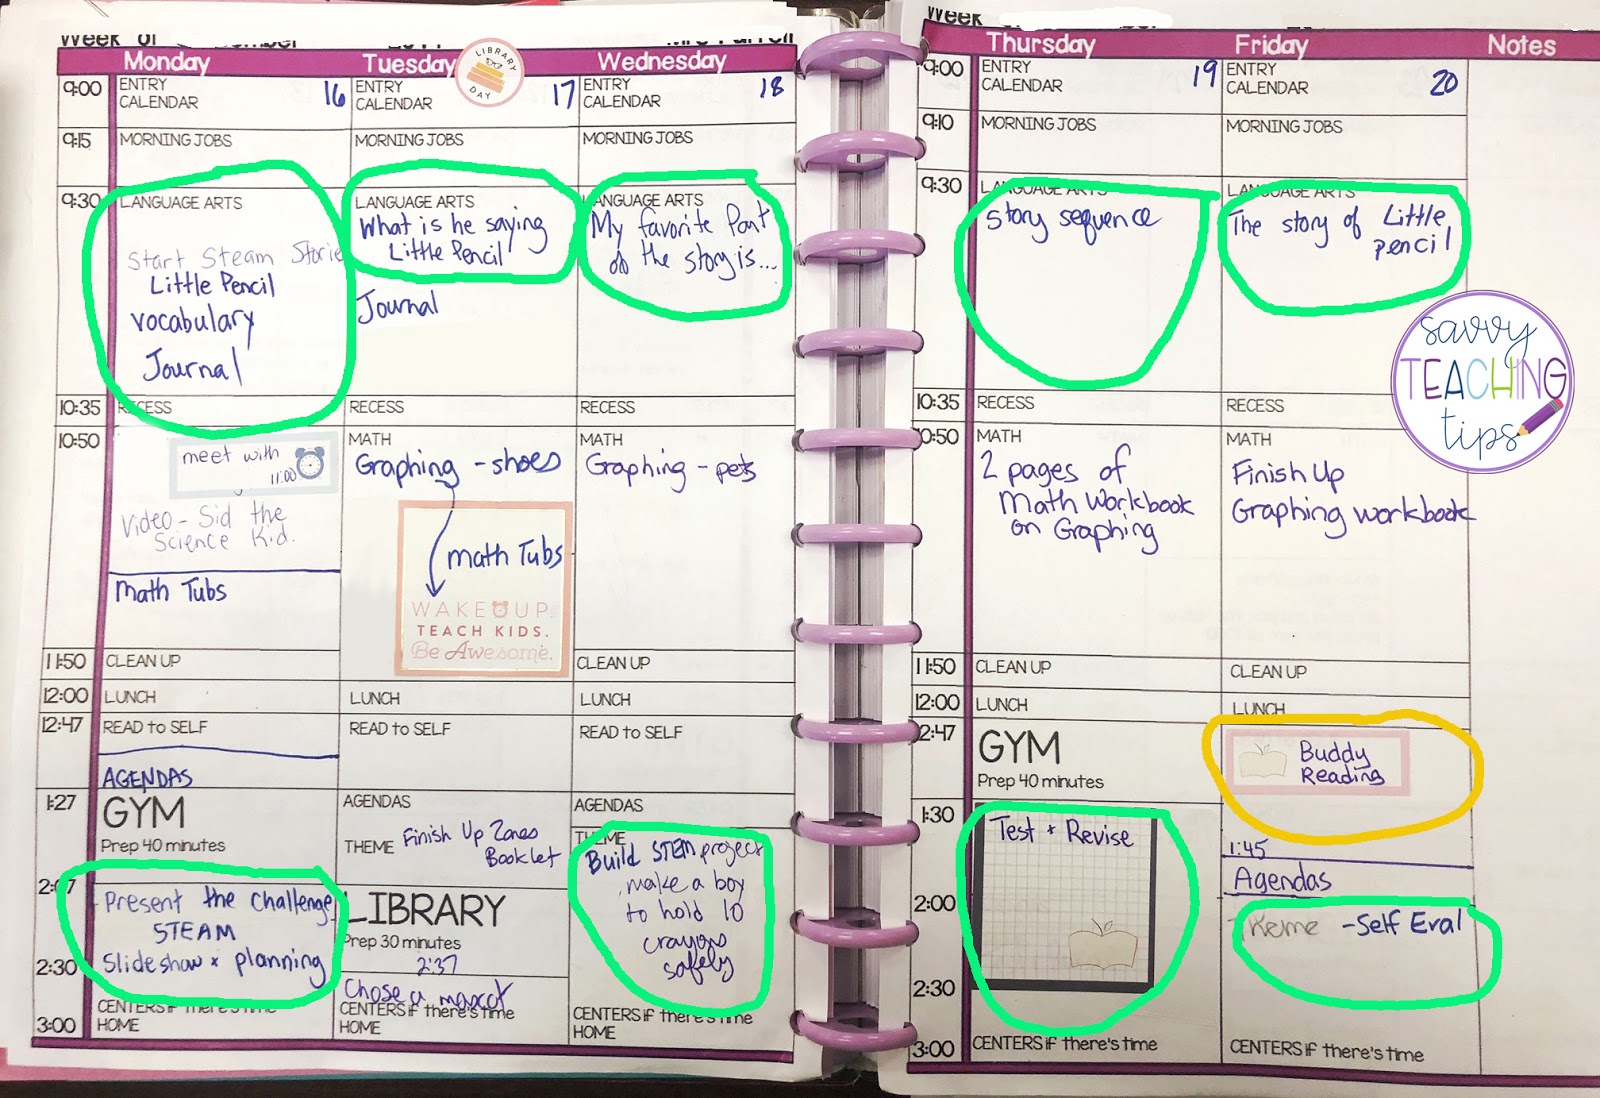 Week of
Monday
Tuesday
Wednesday
LIBRARY
DAY
9:00
ENTRY
CALENDAR
16
ENTRY
CALENDAR
17
ENTRY
CALENDAR
18
9:15
MORNING JOBS
MORNING JOBS
MORNING JOBS
9:30
LANGUAGE ARTS
Start Steam Storie
Little Pencil
vocabulary
Journal
LANGUAGE ARTS
What is he saying
Little Pencil
Journal
LANGUAGE ARTS
My favorite Part
of the story is...
10:35
RECESS
RECESS
RECESS
10:50
meet with
11:00
Video - Sid the
Science Kid.
Math Tubs
MATH
Graphing - shoes
math Tubs
WAKE UP.
TEACH KIDS.
Be Awesome.
MATH
Graphing - pets
11:50
CLEAN UP
CLEAN UP
12:00
LUNCH
LUNCH
LUNCH
12:47
READ to SELF
AGENDAS
READ to SELF
READ to SELF
1:27
GYM
Prep 40 minutes
AGENDAS
THEME Finish Up Zones
Booklet
AGENDAS
THEME
Build STEM project
make a boy
to hold 10
crayons
safely
2:07
Present the challenge
STEAM
Slideshow + planning
LIBRARY
Prep 30 minutes
2:37
Chose a mascot
2:30
CENTERS if there's time
HOME
CENTERS if there's time
HOME
CENTERS if there's time
HOME
3:00
Week
Thursday
Friday
Notes
9:00
ENTRY
CALENDAR
19
ENTRY
CALENDAR
20
9:10
MORNING JOBS
MORNING JOBS
9:30
LANGUAGE ARTS
Story sequence
LANGUAGE ARTS
The story of Little
pencil
savvy
TEACHING
tips
10:35
RECESS
RECESS
10:50
MATH
2 pages of
Math Workbook
on Graphing
MATH
Finish Up
Graphing workbook
11:50
CLEAN UP
CLEAN UP
12:00
LUNCH
LUNCH
2:47
GYM
Prep 40 minutes
Buddy
Reading
1:30
Test + Revise
1:45
Agendas
2:00
Theme - Self Eval
2:30
3:00
CENTERS if there's time
CENTERS if there's time